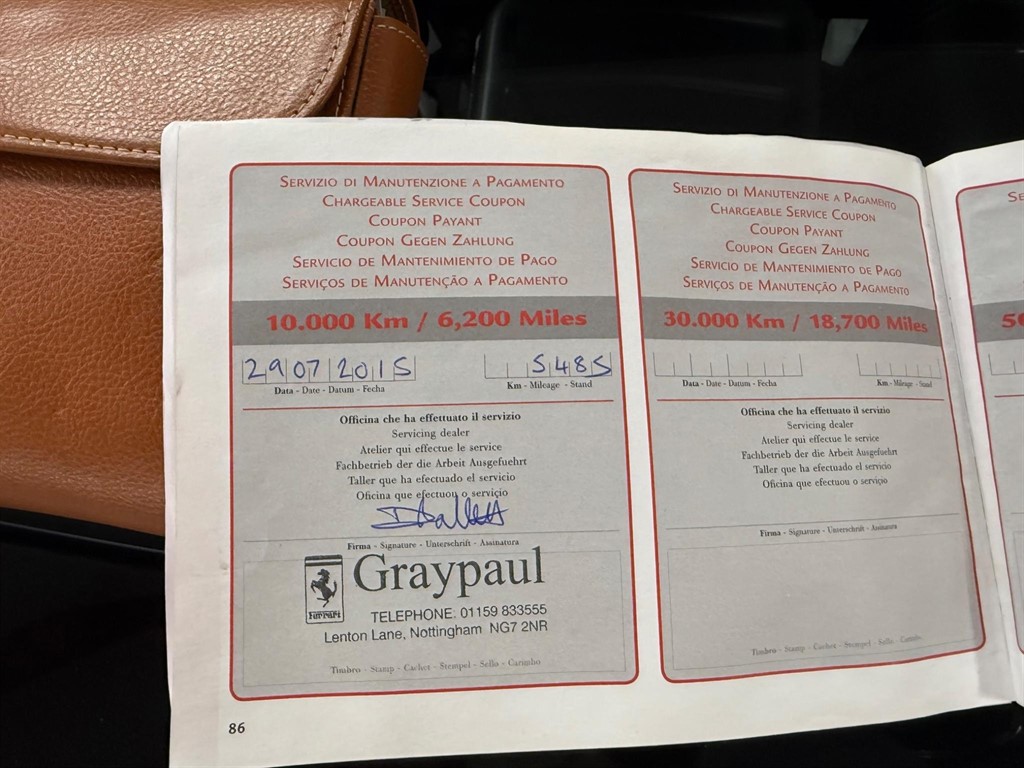 SERVIZIO DI MANUTENZIONE A PAGAMENTO
CHARGEABLE SERVICE COUPON
COUPON PAYANT
COUPON GEGEN ZAHLUNG
SERVICIO DE MANTENIMIENTO DE PAGO
SERVIÇOS DE MANUTENÇÃO A PAGAMENTO
10.000 Km / 6,200 Miles
29 07 2015
5485
Data - Date - Datum - Fecha
Km - Mileage - Stand
Officina che ha effettuato il servizio
Servicing dealer
Atelier qui effectue le service
Fachbetrieb der die Arbeit Ausgefuehrt
Taller que ha efectuado el servicio
Oficina que efectuou o serviço
Firma - Signature - Unterschrift - Assinatura
Ferrari
Graypaul
TELEPHONE: 01159 833555
Lenton Lane, Nottingham NG7 2NR
Timbro - Stamp - Cachet - Stempel - Sello - Carimbo
86
SERVIZIO DI MANUTENZIONE A PAGAMENTO
CHARGEABLE SERVICE COUPON
COUPON PAYANT
COUPON GEGEN ZAHLUNG
SERVICIO DE MANTENIMIENTO DE PAGO
SERVIÇOS DE MANUTENÇÃO A PAGAMENTO
30.000 Km / 18,700 Miles
Data - Date - Datum - Fecha
Km - Mileage - Stand
Officina che ha effettuato il servizio
Servicing dealer
Atelier qui effectue le service
Fachbetrieb der die Arbeit Ausgefuehrt
Taller que ha efectuado el servicio
Oficina que efectuou o serviço
Firma - Signature - Unterschrift - Assinatura
Timbro - Stamp - Cachet - Stempel - Sello - Carimbo